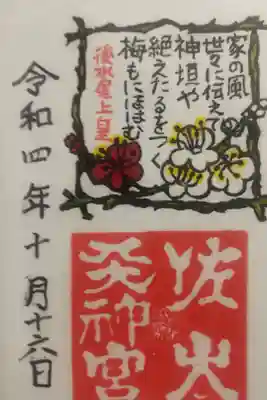 家の風
世々に伝えて
神垣や
絶えたるをつぐ
梅もにほはむ
後水尾上皇
佐太
天神宮
令和四年十月十六日